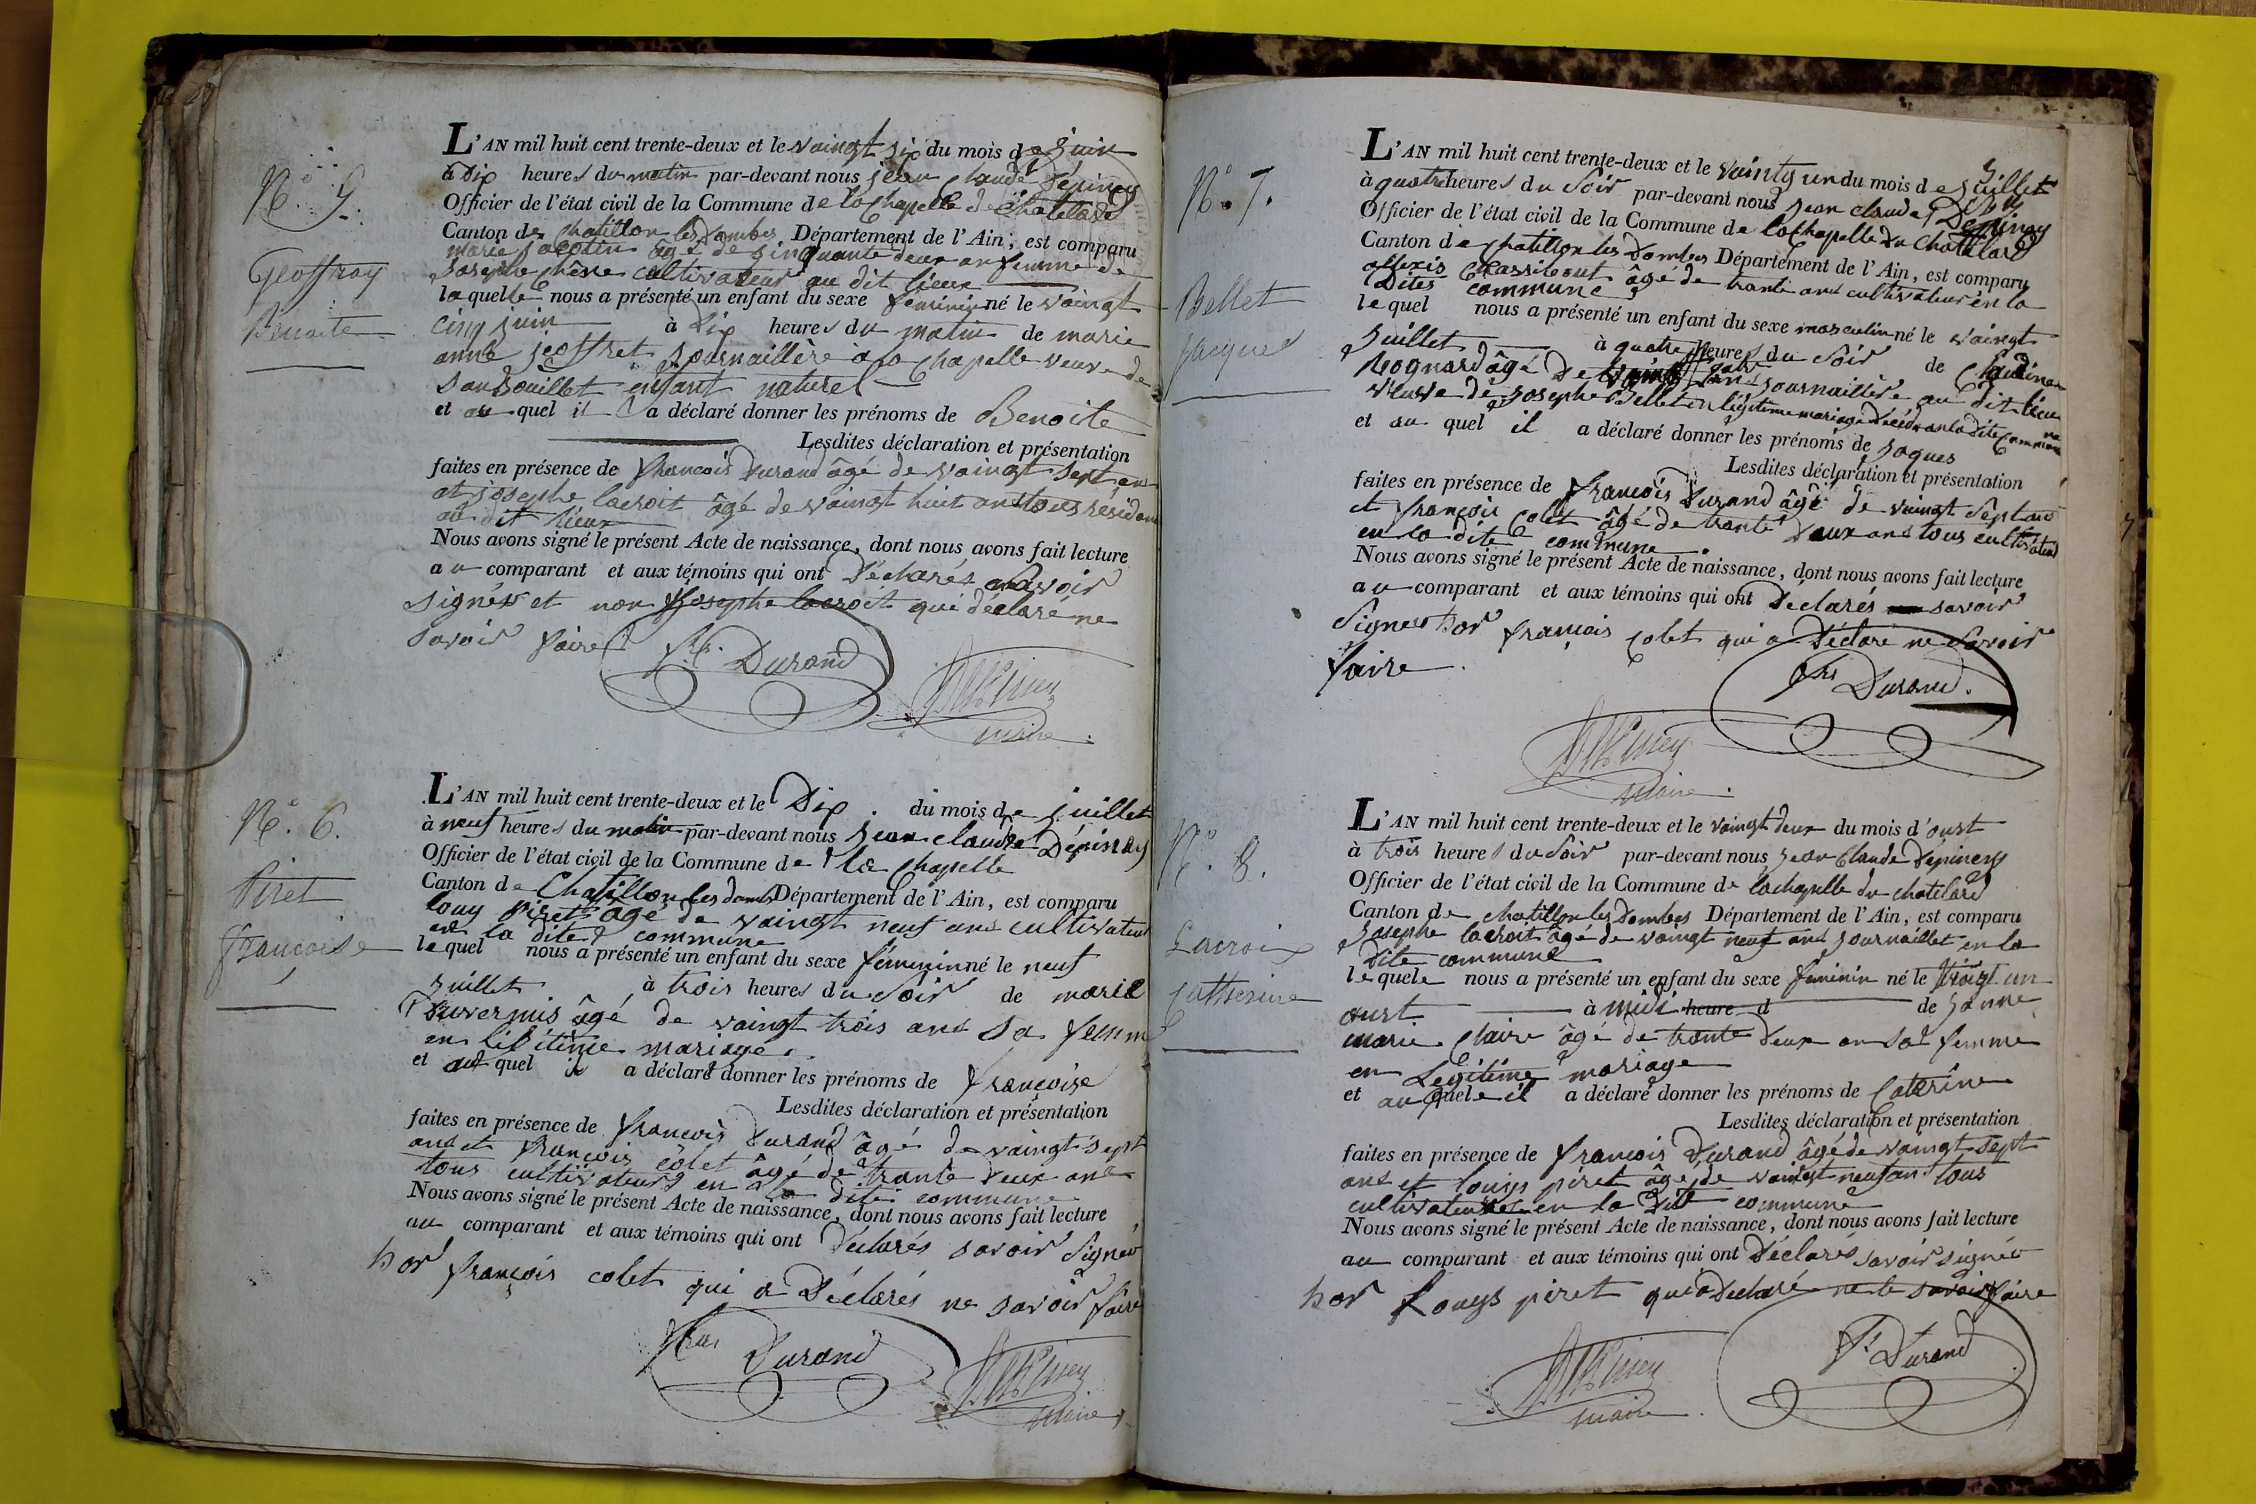 N.° 5.
Geoffray
Benoite
L'AN mil huit cent trente-deux et le vaingt six du mois de juin
à dix heures du matin par-devant nous jean Claude Dépiney
Officier de l'état civil de la Commune de la Chapelle du Chatelard
Canton de Chatillon les Dombes Département de l'Ain, est comparu
marie jacotin âgé de cinquante deux an femme de
Josephe chêne cultivateur au dit lieux
laquelle nous a présenté un enfant du sexe feminin né le vaingt
cinq juin à Dix heures du matin de marie
anne jeoffret journaillère à la Chapelle veuve de
enfant naturel
et au quel il a déclaré donner les prénoms de Benoite
Lesdites déclaration et présentation
faites en présence de françois Durand âgé de vaingt sept an
et josephe lacroit âgé de vaingt huit ans tous résidant
au dit lieux
Nous avons signé le présent Acte de naissance, dont nous avons fait lecture
au comparant et aux témoins qui ont Déclarés savoir
signér et non josephe lacroit qui déclaré ne
savoir faire
Durand
maire
N.° 6.
Piret
françoise
L'AN mil huit cent trente-deux et le Dix du mois de juillet
à neuf heures du matin par-devant nous jean claude Dépiney
Officier de l'état civil de la Commune de la Chapelle
Canton de Chatillon les dombs Département de l'Ain, est comparu
louy piret âgé de vaingt neuf ans cultivateur
en la dite commune
lequel nous a présenté un enfant du sexe féminin né le neuf
juillet à trois heures du soir de marie
Duvernis âgé de vaingt trois ans sa femme
en légitime mariage
et au quel il a déclaré donner les prénoms de françoise
Lesdites déclaration et présentation
faites en présence de françois Durand âgé de vaingt sept
ans et françois colet âgé de trante deux ans
tous cultivateurs en la dite commune
Nous avons signé le présent Acte de naissance, dont nous avons fait lecture
au comparant et aux témoins qui ont Déclarés savoir signér
hor françois colet qui a Déclarés ne savoir faire
Durand
maire
N.° 7.
Bellet
jacques
L'AN mil huit cent trente-deux et le vaingt un du mois de juillet
à quatre heures du soir par-devant nous jean claude Dépiney
Officier de l'état civil de la Commune de la Chapelle du Chatelard
Canton de Chatillon les Dombes Département de l'Ain, est comparu
allexis âgé de trante ans cultivateur en la
Dites commune
lequel nous a présenté un enfant du sexe masculin né le vaingt
juillet à quatre heures du soir de Claudine
âgé De journaillère au dit lieu
veuve de josephe Bellet en légitime mariage décédé en la dite commune
et au quel il a déclaré donner les prénoms de jaques
Lesdites déclaration et présentation
faites en présence de françois Durand âgé de vaingt sept ans
et françois Colet âgé de trante deux ans tous cultivateur
en la dite commune
Nous avons signé le présent Acte de naissance, dont nous avons fait lecture
au comparant et aux témoins qui ont Déclarés savoir
signer hor françois colet qui a Déclaré ne savoir
faire
Durand
maire
N.° 8.
Lacroix
Catherine
L'AN mil huit cent trente-deux et le vaingt deux du mois d'oust
à trois heures du soir par-devant nous jean Claude Dépiney
Officier de l'état civil de la Commune de lachapelle du chatelard
Canton de chatillon les Dombes Département de l'Ain, est comparu
josephe lacroit âgé de vaingt neuf ans journaillet en la
Dite commune
lequele nous a présenté un enfant du sexe feminin né le vingt un
oust à midi heure d de janne
marie Claire âgé de trante deux an sa femme
en Legitime mariage
et au quele il a déclaré donner les prénoms de Caterine
Lesdites déclaration et présentation
faites en présence de françois Durand âgé de vaingt sept
ans et louys piret âgé de vaingt neuf an tous
cultivateurs en la dite commune
Nous avons signé le présent Acte de naissance, dont nous avons fait lecture
au comparant et aux témoins qui ont Déclarés savoir signér
hor Louys piret qui a Declaré ne le savoir faire
Durand
maire